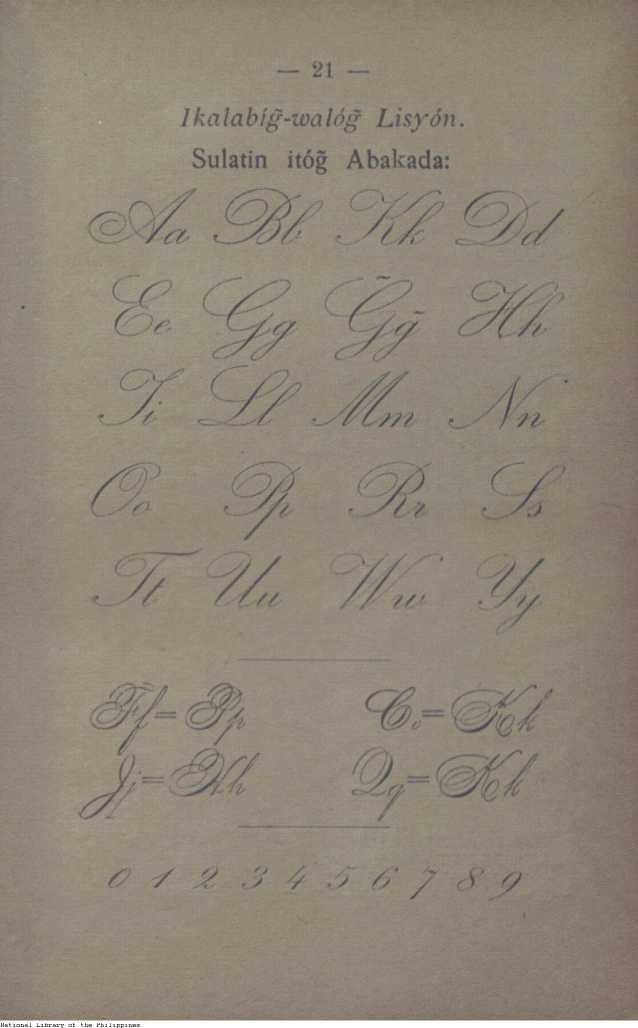 — 21 —
Ikalabíg̃-walóg̃ Lisyón.
Sulatin itóg̃ Abakada:
Aa Bb Kk Dd
Ee Gg G̃g̃ Hh
Ii Ll Mm Nn
Oo Pp Rr Ss
Tt Uu Ww Yy
Ff=Pp Cc=Kk
Jj=Hh Qq=Kk
0 1 2 3 4 5 6 7 8 9
National Library of the Philippines